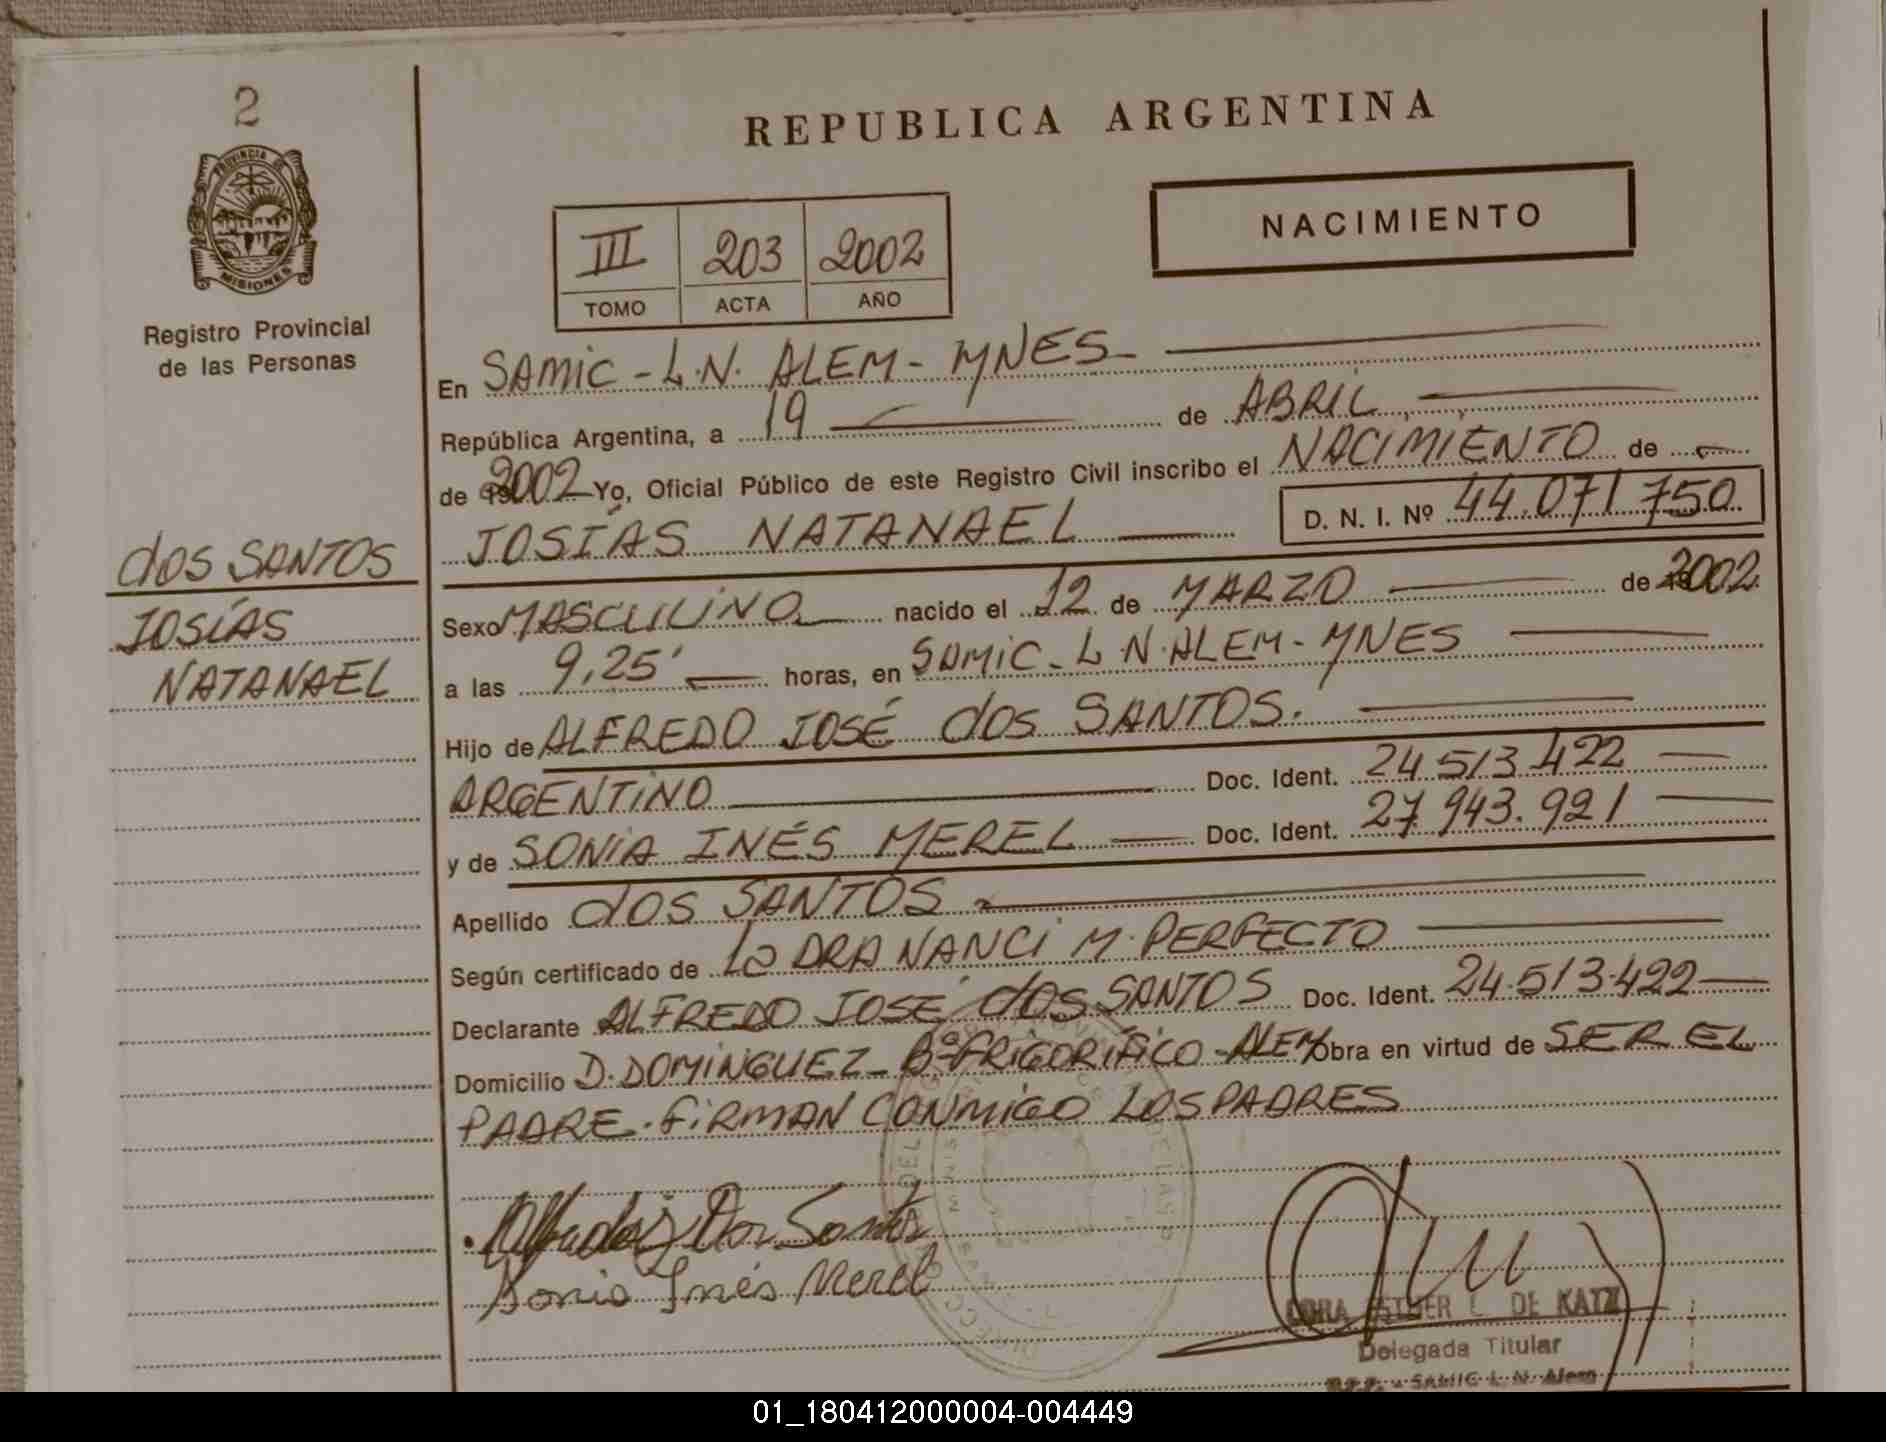 2
PROVINCIA DE
MISIONES
Registro Provincial
de las Personas
dos SANTOS
JOSÍAS
NATANAEL
REPUBLICA ARGENTINA
III 203 2002
TOMO ACTA AÑO
NACIMIENTO
En SAMIC - L.N. ALEM - MNES
República Argentina, a 19 de ABRIL
de 2002 Yo, Oficial Público de este Registro Civil inscribo el NACIMIENTO de
JOSÍAS NATANAEL D. N. I. Nº 44.071750.
Sexo MASCULINO nacido el 12 de MARZO de 2002.
a las 9,25' horas, en SAMIC - L.N. ALEM - MNES
Hijo de ALFREDO JOSÉ dos SANTOS.
ARGENTINO Doc. Ident. 24.513.422
y de SONIA INÉS MEREL Doc. Ident. 27.943.921
Apellido dos SANTOS
Según certificado de La DRA NANCI M. PERFECTO
Declarante ALFREDO JOSÉ dos SANTOS Doc. Ident. 24.513.422
Domicilio D. DOMINGUEZ - Bº FRIGORÍFICO - ALEM Obra en virtud de SER EL
PADRE. FIRMAN CONMIGO LOS PADRES
Dos Santos
Sonia Inés Merel
DE KATZ
Delegada Titular
SAMIC L. N. Alem
01_180412000004-004449